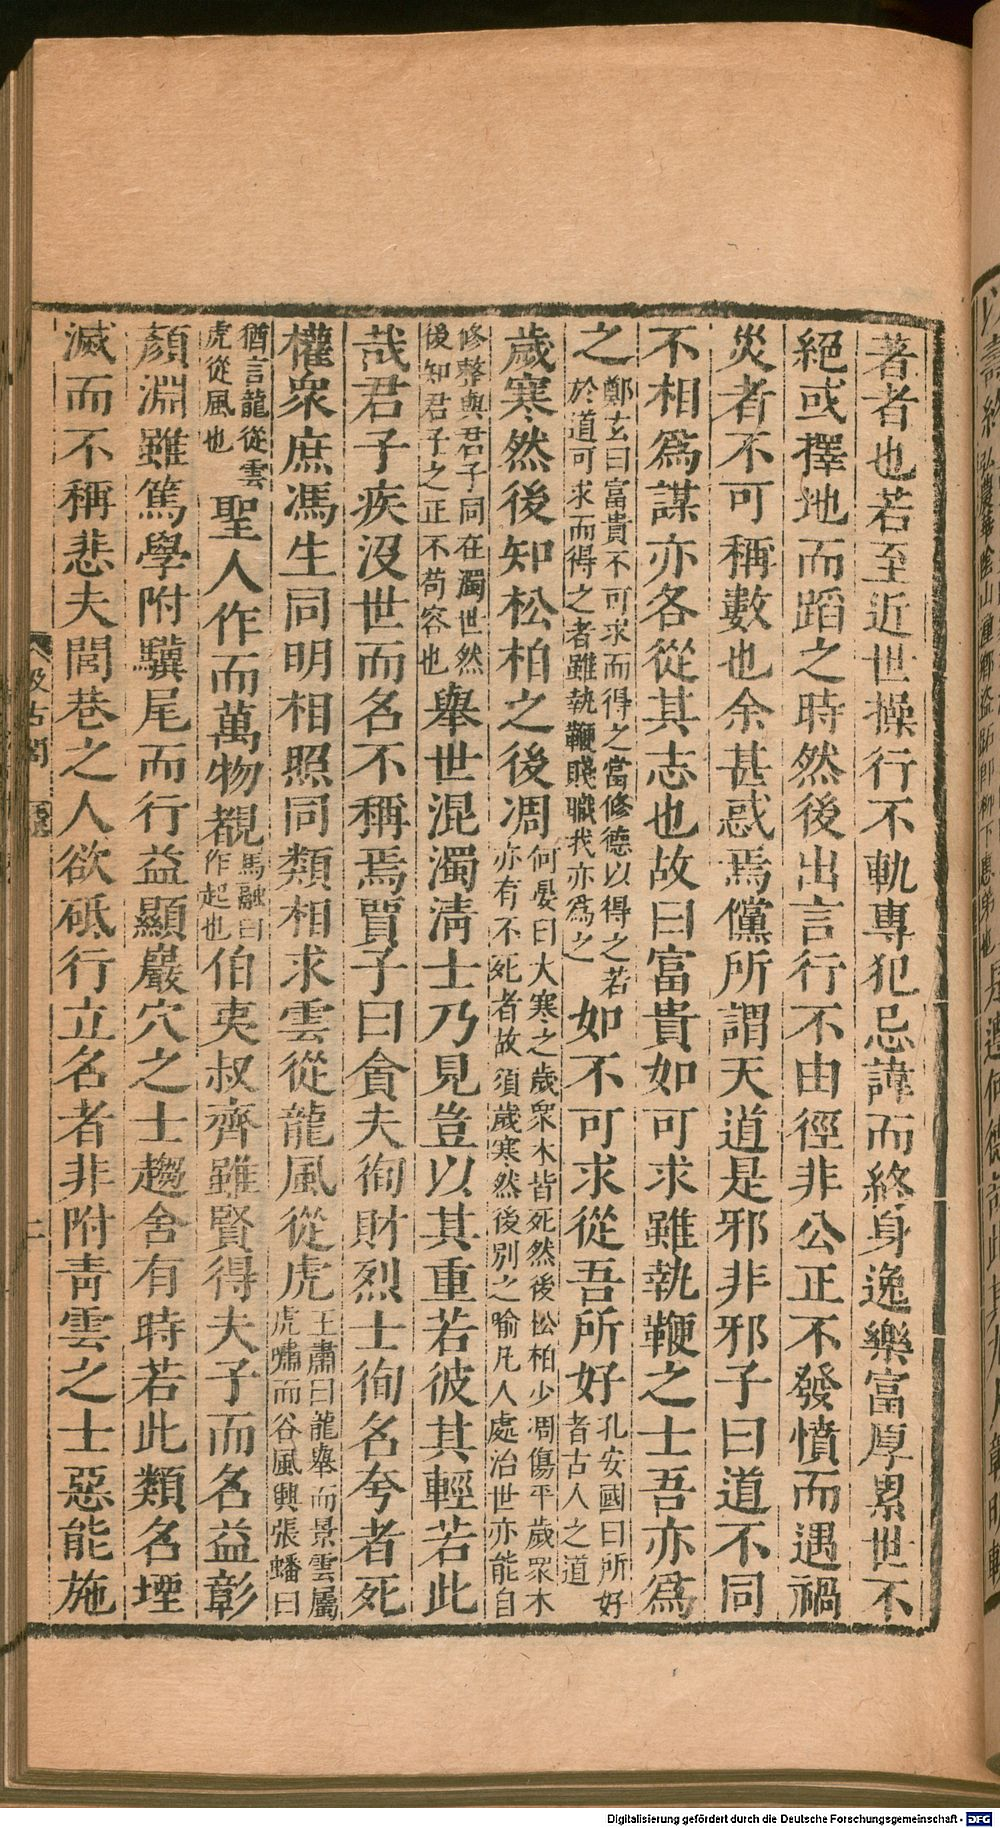 著者也若至近世操行不軌專犯忌諱而終身逸樂富厚累世不
絕或擇地而蹈之時然後出言行不由徑非公正不發憤而遇禍
災者不可稱數也余甚惑焉儻所謂天道是邪非邪子曰道不同
不相爲謀亦各從其志也故曰富貴如可求雖執鞭之士吾亦爲
之鄭玄曰富貴不可求而得之當修德以得之若於道可求而得之者雖執鞭賤職我亦爲之如不可求從吾所好孔安國曰所好者古人之道
歲寒然後知松柏之後凋何晏曰大寒之歲衆木皆死然後松柏少凋傷平歲衆木亦有不死者故須歲寒然後別之喻凡人處治世亦能自
修整與君子同在濁世然後知君子之正不苟容也舉世混濁淸士乃見豈以其重若彼其輕若此
哉君子疾沒世而名不稱焉賈子曰貪夫徇財烈士徇名夸者死
權衆庶馮生同明相照同類相求雲從龍風從虎王肅曰龍舉而景雲屬虎嘯而谷風興張璠曰
猶言龍從雲虎從風也聖人作而萬物覩馬融曰作起也伯夷叔齊雖賢得夫子而名益彰
顏淵雖篤學附驥尾而行益顯巖穴之士趨舍有時若此類名堙
滅而不稱悲夫閭巷之人欲砥行立名者非附靑雲之士惡能施
汲古閣
二
Digitalisierung gefördert durch die Deutsche Forschungsgemeinschaft - DFG